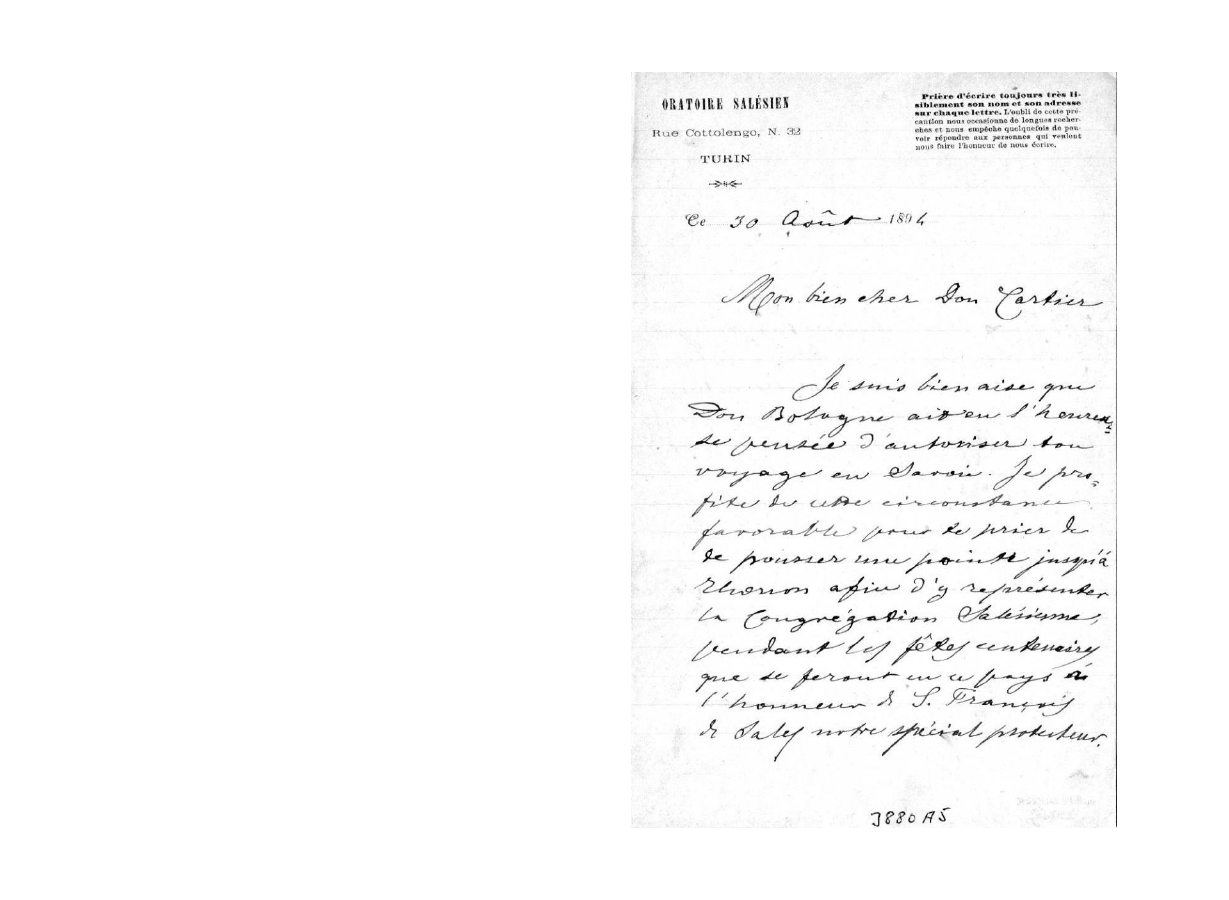 ORATOIRE SALÉSIEN
Rue Cottolengo, N. 32
TURIN
Prière d'écrire toujours très li-
siblement son nom et son adresse
sur chaque lettre. L'oubli de cette pré-
caution nous occasionne de longues recher-
ches et nous empêche quelquefois de pou-
voir répondre aux personnes qui veulent
nous faire l'honneur de nous écrire.
Ce 30 Août 1894
Mon bien cher Don Cartier
Je suis bien aise que
Don Bologne ait eu l'heureu=
se pensée d'autoriser ton
voyage en Savoie. Je pro=
fite de cette circonstance
favorable pour te prier de
de pousser une pointe jusqu'à
Thonon afin d'y représenter
la Congrégation Salésienne,
pendant les fêtes centenaires
que se feront en ce pays à
l'honneur de S. François
de Sales notre spécial protecteur.
3880 A5